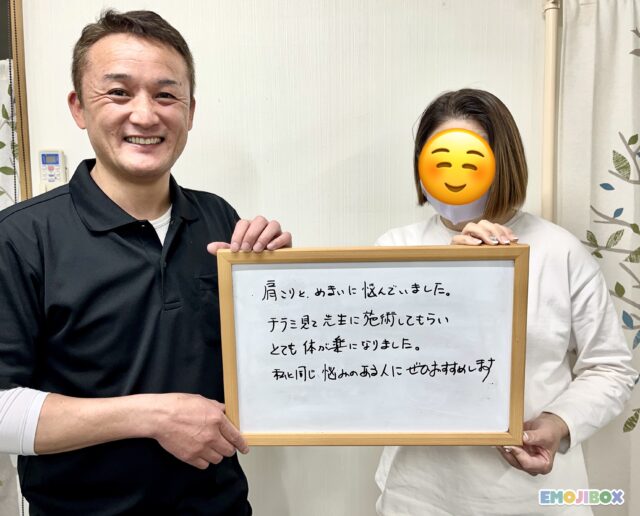 肩こりと、めまいに悩んでいました。
チラシ見て先生に施術してもらい
とても体が楽になりました。
私と同じ悩みのある人にぜひおすすめします
EMOJIBOX